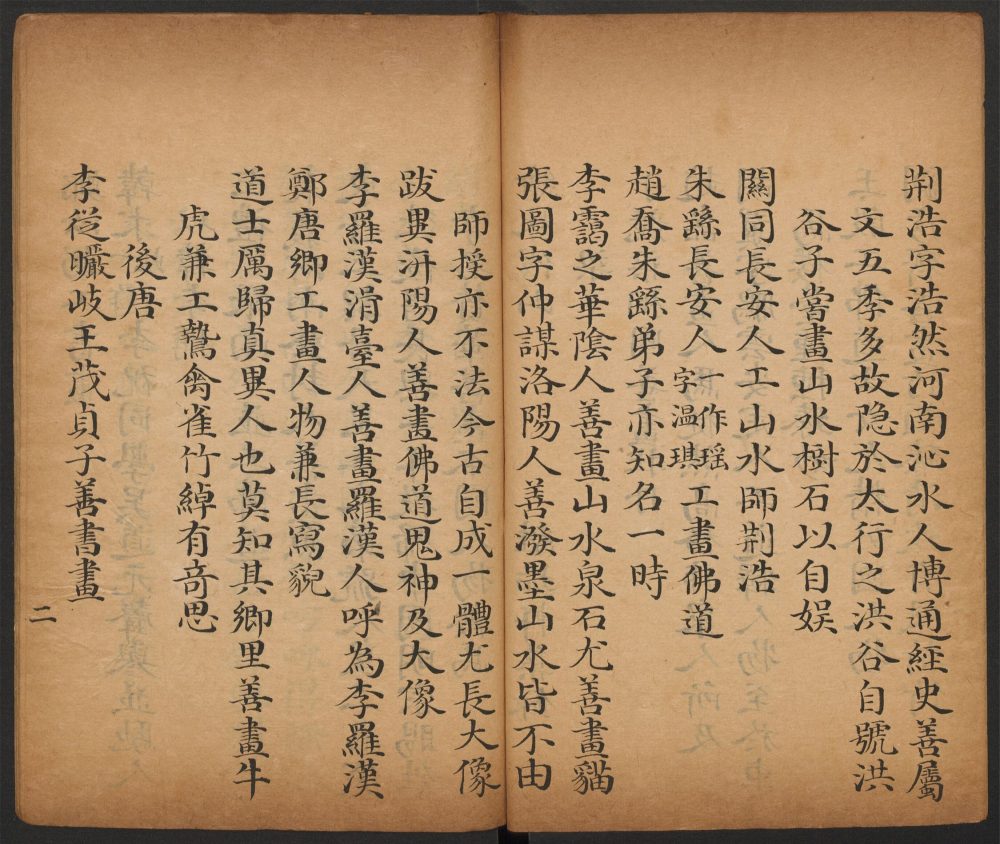 荆浩字浩然河南沁水人博通經史善屬
文五季多故隐於太行之洪谷自號洪
谷子嘗畫山水樹石以自娱
關同長安人工山水師荆浩
朱繇長安人一作瑶字温琪工畫佛道
趙喬朱繇弟子亦知名一時
李靄之華陰人善畫山水泉石尤善畫貓
張圖字仲謀洛陽人善潑墨山水皆不由
師授亦不法今古自成一體尤長大像
跋異汧陽人善畫佛道鬼神及大像
李羅漢涓臺人善畫羅漢人呼為李羅漢
鄭唐卿工畫人物兼長寫貌
道士厲歸真異人也莫知其鄉里善畫牛
虎兼工鷙禽雀竹綽有竒思
後唐
李從曮岐王茂貞子善書畫
二